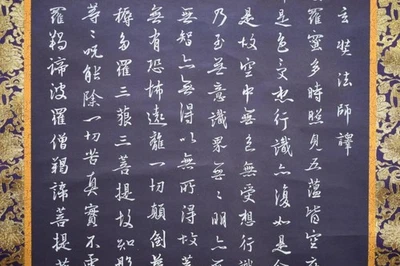 玄奘法師譯
羅蜜多時照見五蘊皆空
是色受想行識亦復如是舍
是故空中無色無受想行識
乃至無意識界無〻明亦無
無智亦無得以無所得故菩
無有恐怖遠離一切顛倒夢
耨多羅三藐三菩提故知般
等〻呪能除一切苦真實不虛
羅羯諦波羅僧羯諦菩提薩